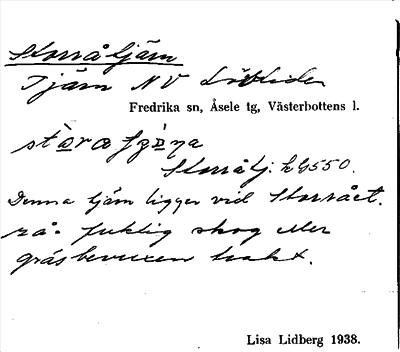 Storråtjärn
Tjärn NV Lövlider
Fredrika sn, Åsele tg, Västerbottens l.
Storråtj. hG550.
Denna tjärn ligger vid Storrået.
på fuktig skog eller
gräsbevuxen trakt.
Lisa Lidberg 1938.